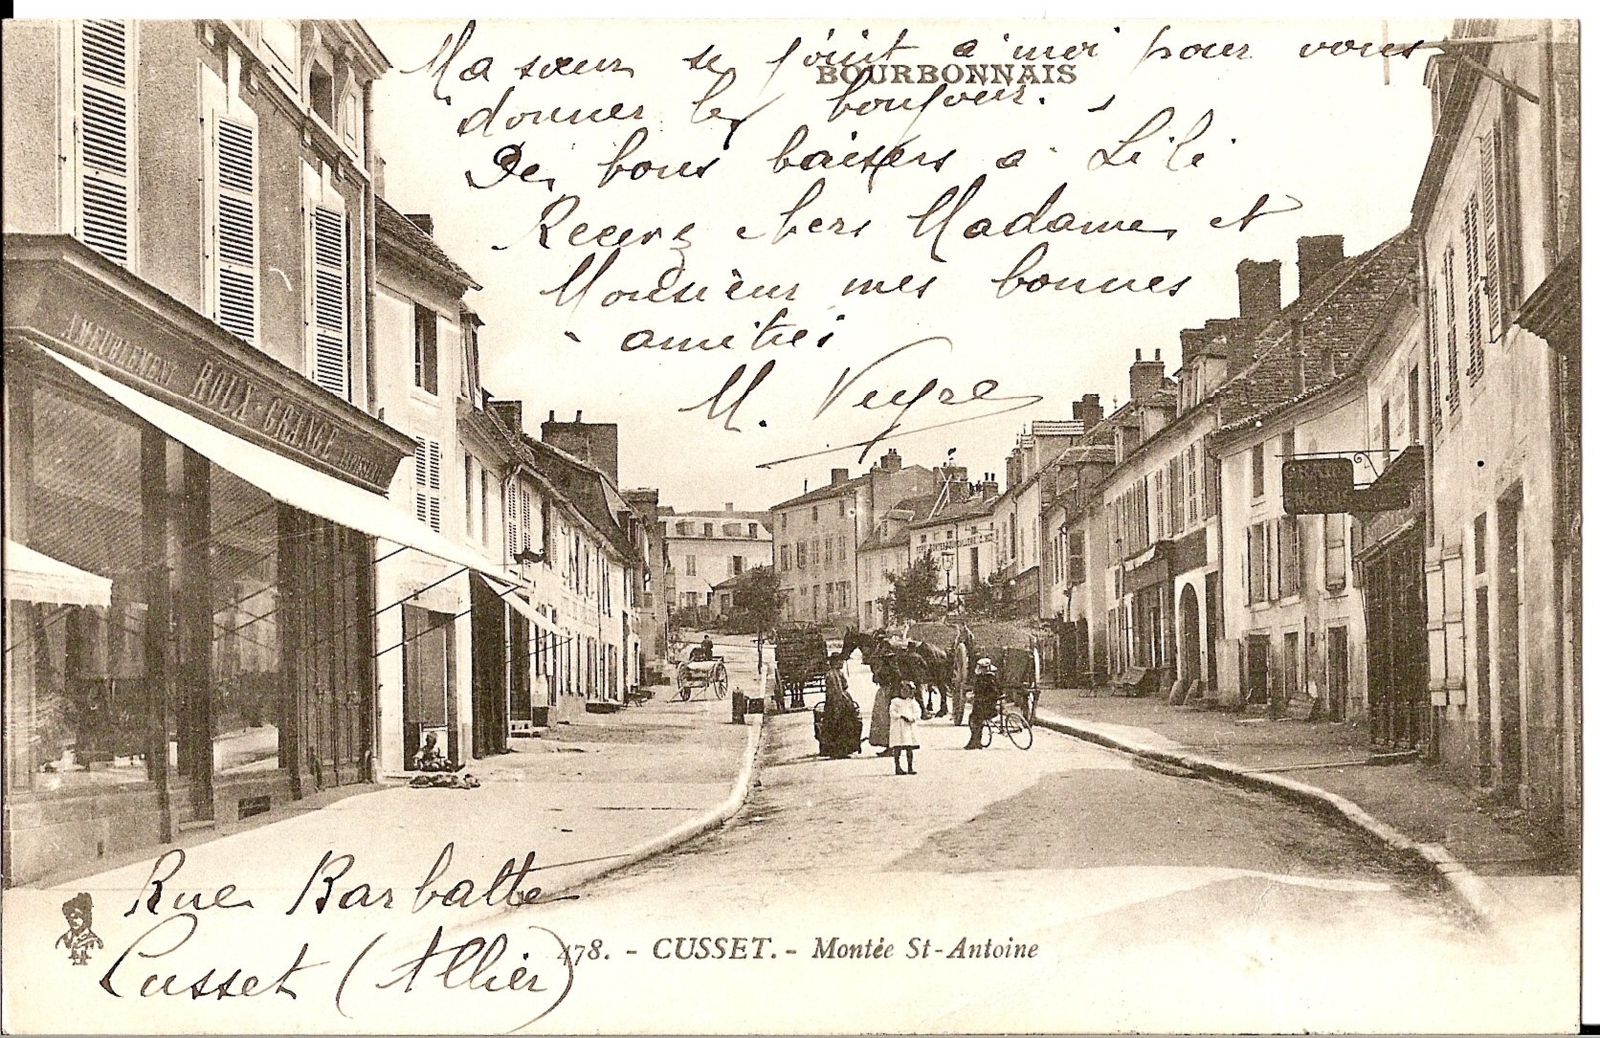 Ma soeur se joint a moi pour vous
BOURBONNAIS
donner le bonjour.
De bons baisers a Lili
Recevez chers Madame et
Monsieur mes bonnes
amitiés
M. Veyre
AMEUBLEMENT ROUX-GRANGE
Rue Barbatte
Cusset (Allier)
178. - CUSSET. - Montée St-Antoine